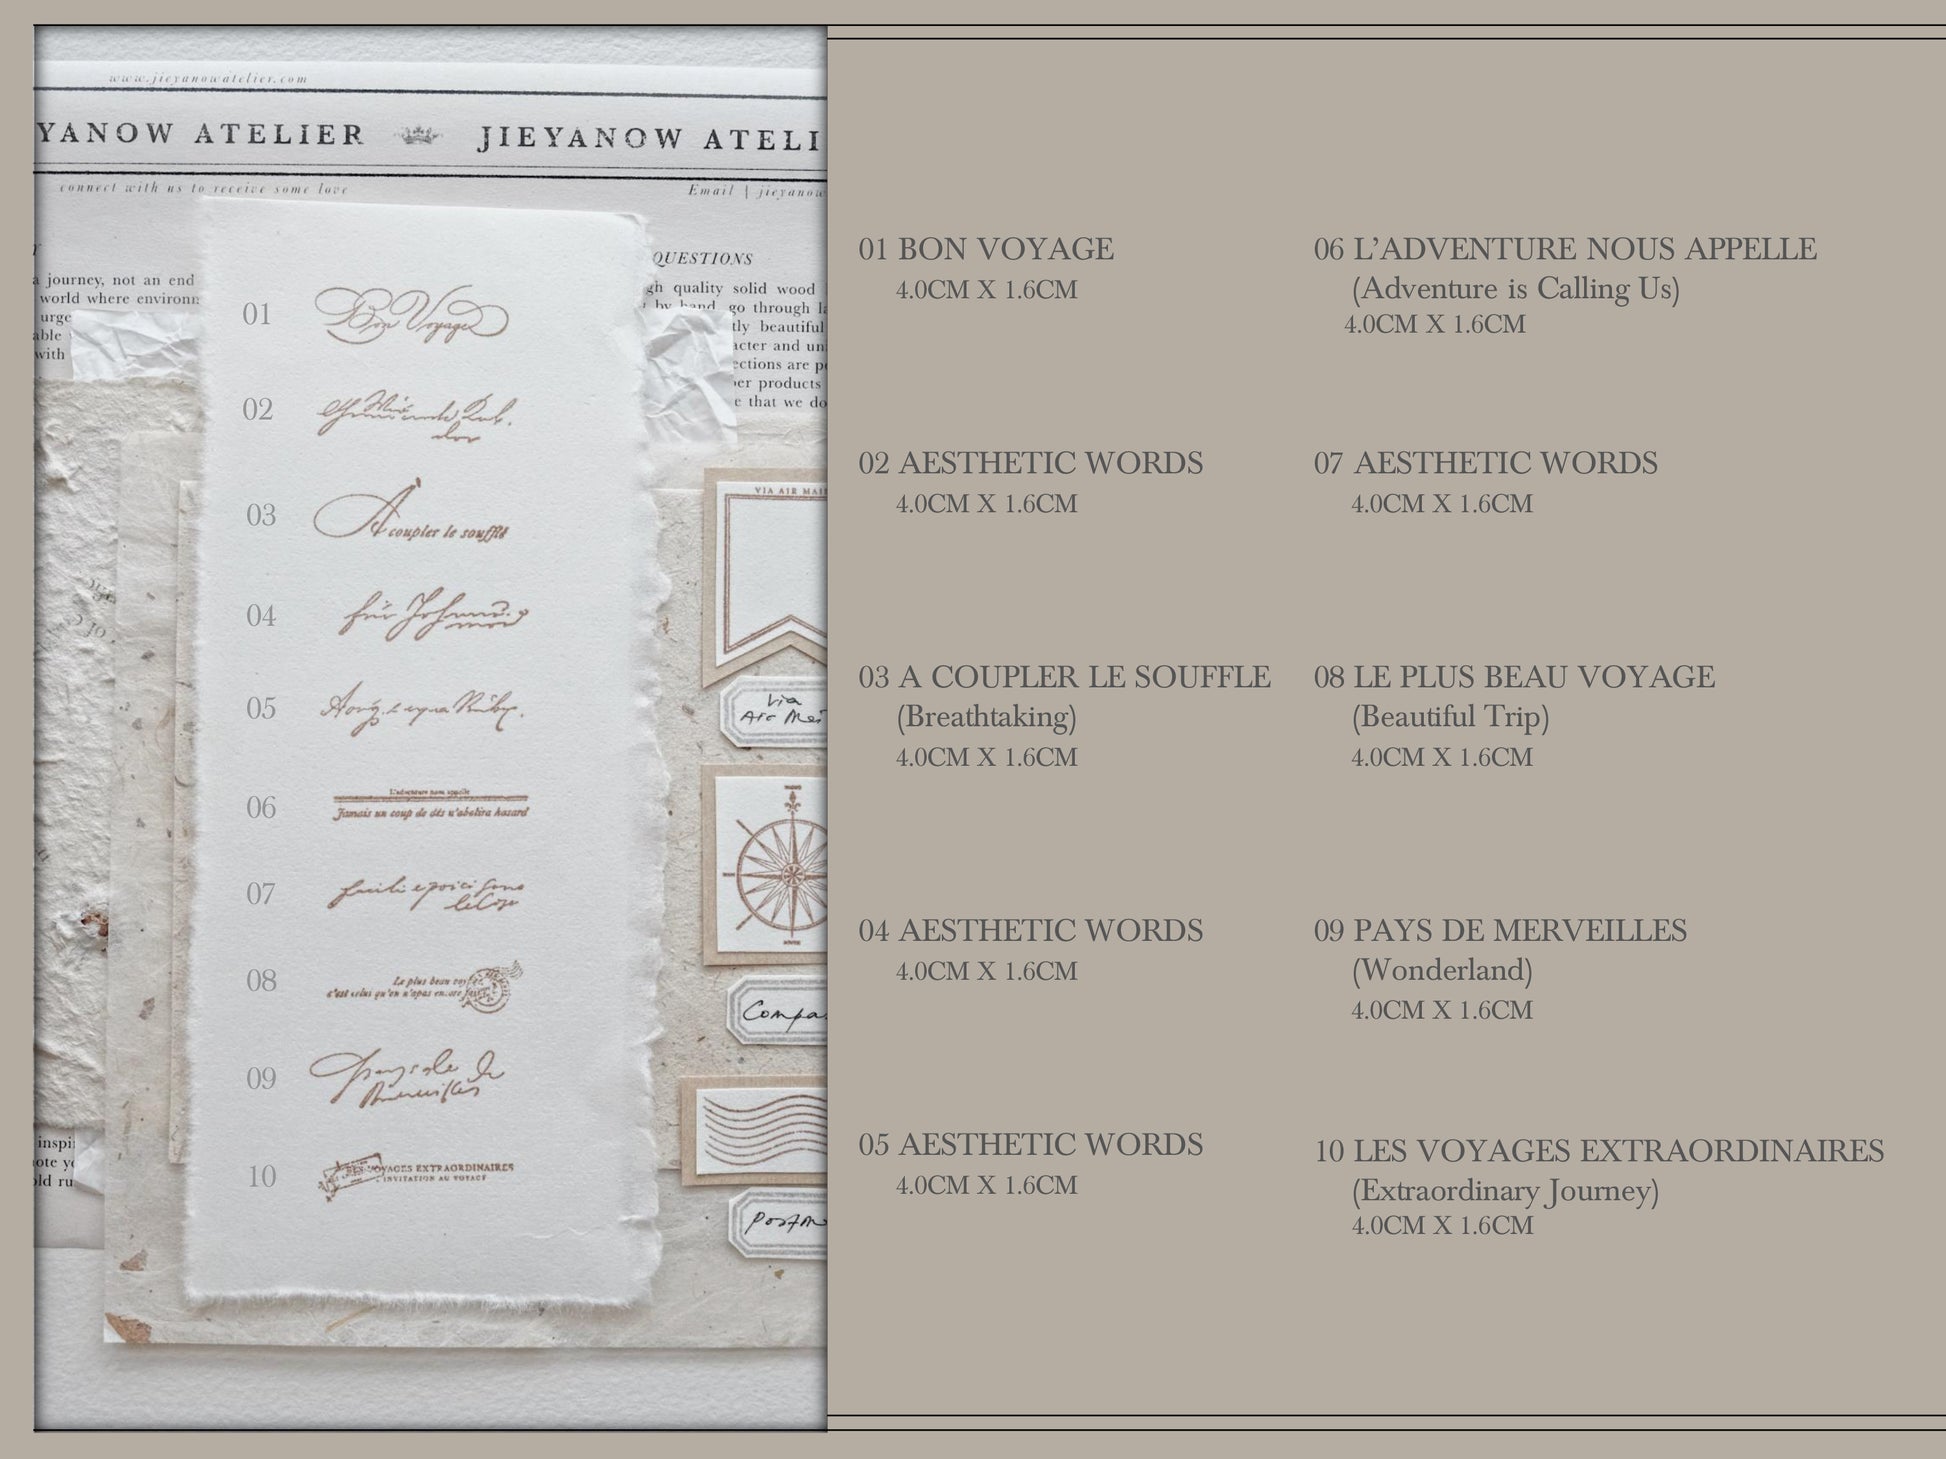 www.jieyanowatelier.com
YANOW ATELIER JIEYANOW ATELI
connect with us to receive some love
Email | jieyanow
QUESTIONS
a journey, not an end
world where environ
urge
able
with
gh quality solid wood
by hand, go through
tly beautiful
acter and un
ections are
per products
e that we do
01 Bon Voyage
02
03 A coupler le souffle
04 für
05
06 L'adventure nous appelle
Jamais un coup de dés n'abolira hasard
07
08 Le plus beau
c'est celui qu'on n'a pas encore
09 Pays de
Merveilles
10 LES VOYAGES EXTRAORDINAIRES
INVITATION AU VOYAGE
VIA AIR MAI
Via
Air Mai
Compa
Postm
inspi
ote
old ru
01 BON VOYAGE
4.0CM X 1.6CM
02 AESTHETIC WORDS
4.0CM X 1.6CM
03 A COUPLER LE SOUFFLE
(Breathtaking)
4.0CM X 1.6CM
04 AESTHETIC WORDS
4.0CM X 1.6CM
05 AESTHETIC WORDS
4.0CM X 1.6CM
06 L’ADVENTURE NOUS APPELLE
(Adventure is Calling Us)
4.0CM X 1.6CM
07 AESTHETIC WORDS
4.0CM X 1.6CM
08 LE PLUS BEAU VOYAGE
(Beautiful Trip)
4.0CM X 1.6CM
09 PAYS DE MERVEILLES
(Wonderland)
4.0CM X 1.6CM
10 LES VOYAGES EXTRAORDINAIRES
(Extraordinary Journey)
4.0CM X 1.6CM